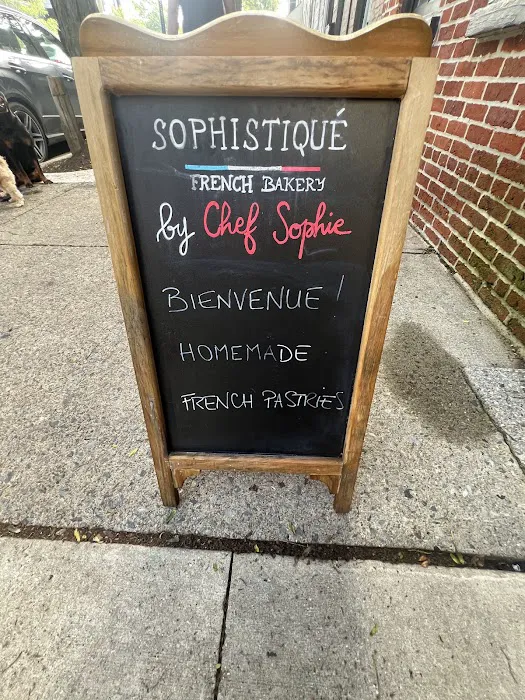 SOPHISTIQUÉ
FRENCH BAKERY
by Chef Sophie
BIENVENUE !
HOMEMADE
FRENCH PASTRIES